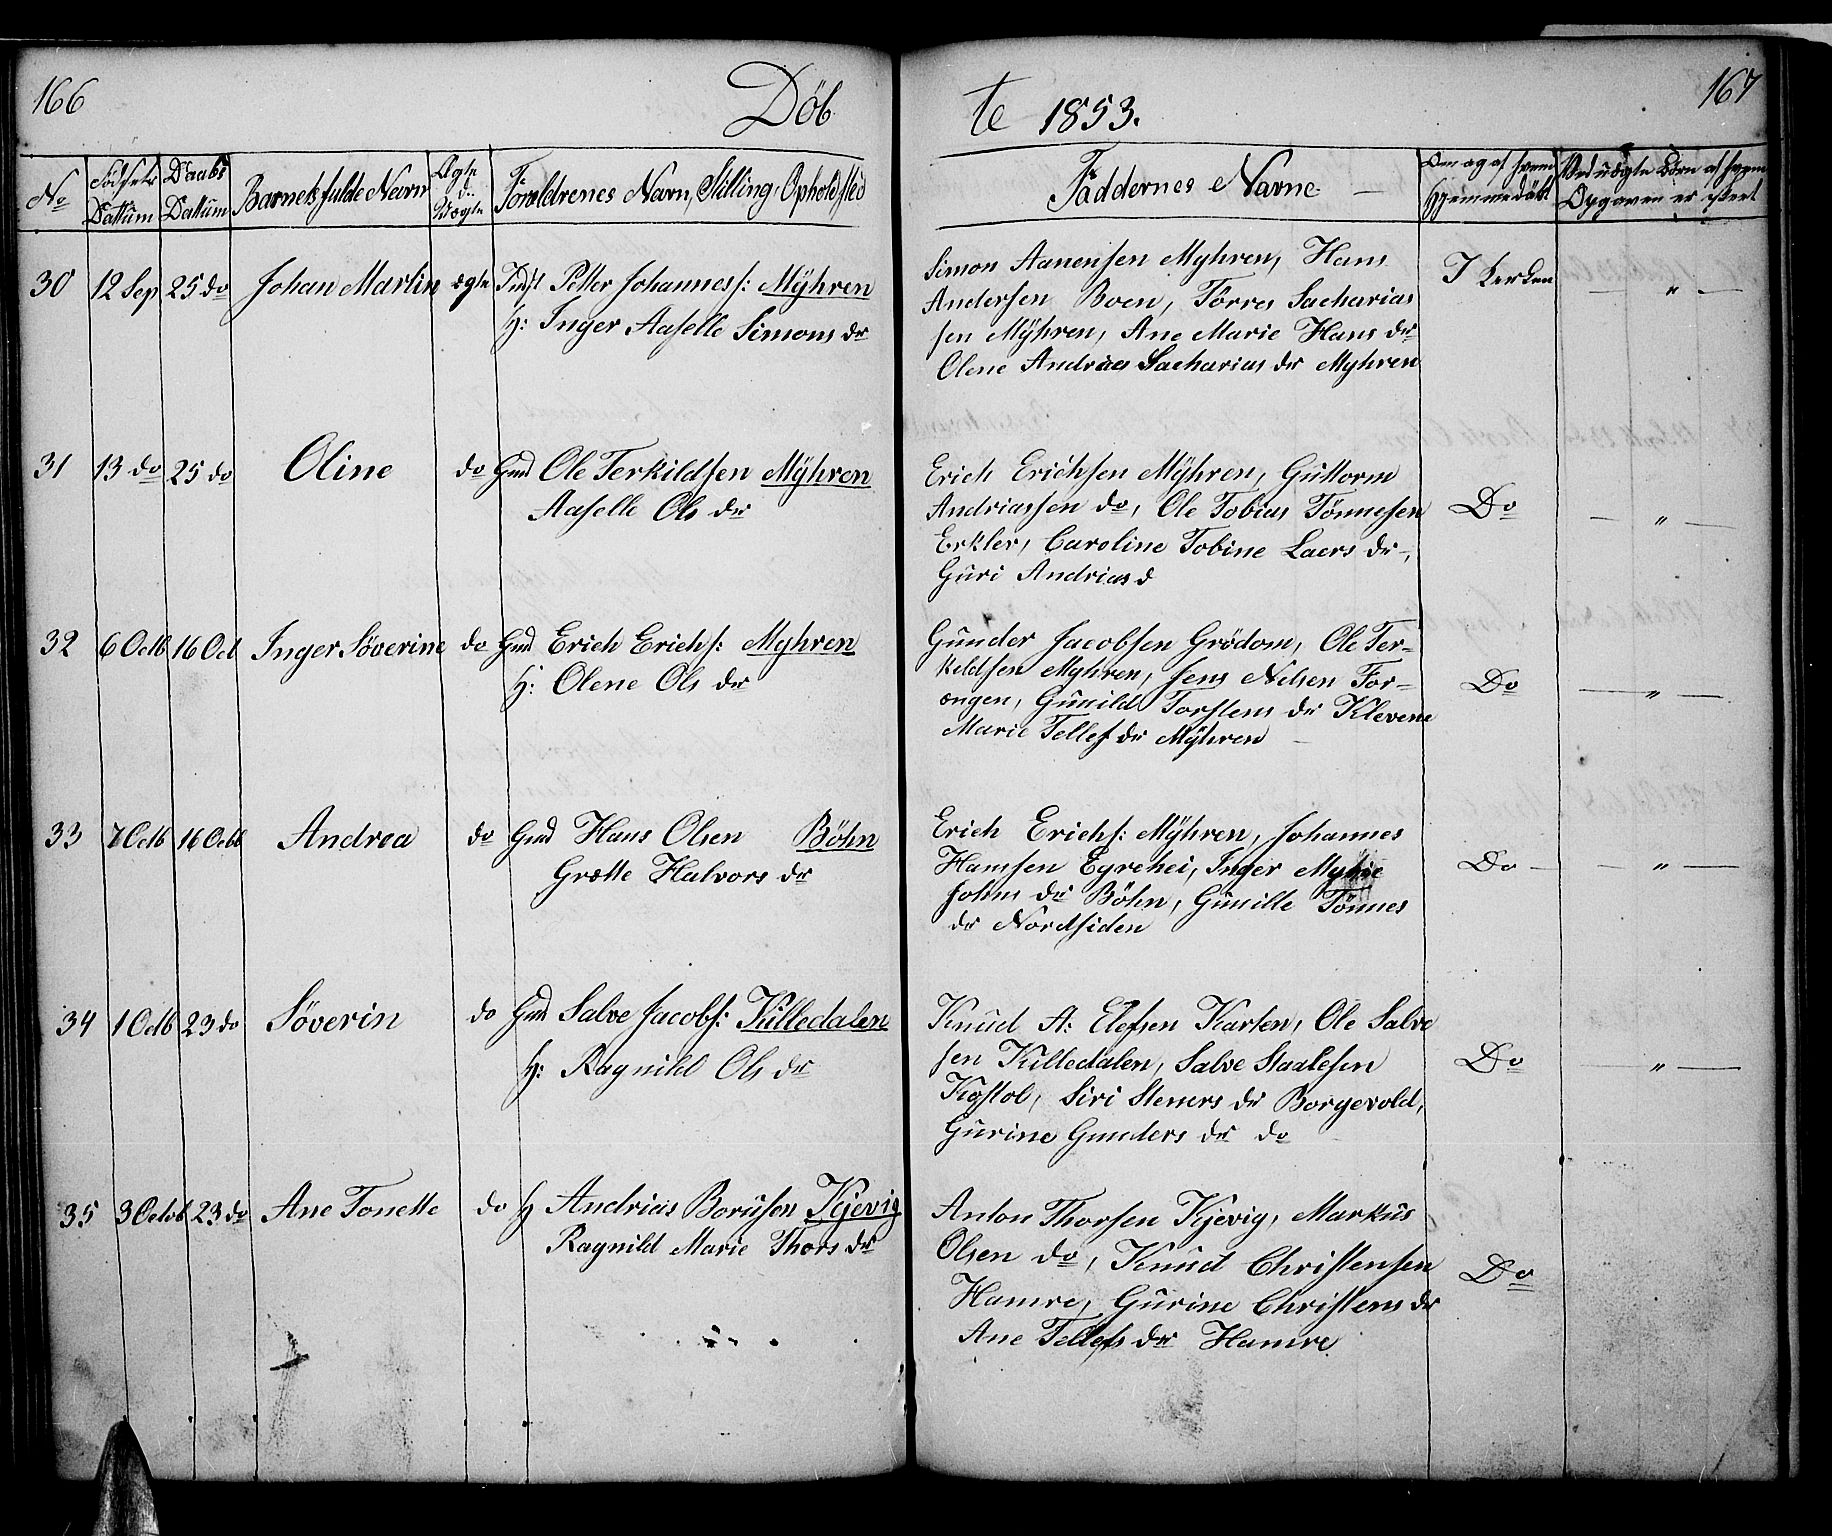 166
Döb
te 1853.
167
No
Födsels Datum
Daabs Datum
Barnets fulde Navn
Ægte d. Uægte
Foreldrenes Navn, Stilling, Opholdssted
Faddernes Navne
Om og af hvem Hjemmedöbt
Ved uægte Börn af hvem Opgaven er skeet
30 12 Sep 25 do Johan Martin ægte Inst Petter Johanness: Myhren
H: Inger Aaselle Simons dr
Simon Aanensen Myhren, Hans
Andersen Boen, Törres Sacharias
sen Myhren, Ane Marie Hans dr
Olene Andrea Sacharias dr Myhren
I Kerken — " —
31 13 do 25 do Oline do Gmd Ole Terkildsen Myhren
Aaselle Ols dr
Erich Erichsen Myhren, Guttorm
Andriassen do, Ole Tobias Tönnesen
Erkler, Caroline Tobine Laers dr,
Guri Andrias d
Do — " —
32 6 Octb 16 Oct Inger Söverine do Gmd Erich Erichs: Myhren
H: Olene Ols dr
Gunder Jacobsen Grödom, Ole Ter-
keldsen Myhren, Jens Nelsen For-
ongen, Gunild Torstens dr Klevene
Marie Tellef dr Myhren
Do — " —
33 7 Octb 16 Octb Andrea do Gmd Hans Olsen Böhn
Grætte Halvors dr
Erich Erichs: Myhren, Johannes
Hansen Egrehei, Inger
Johns dr Böhn, Gunille Tönnes
dr Nordsiden
Do — " —
34 1 Octb 23 do Söverin do Gmd Salve Jacobs: Kulledalen
H: Ragnild Ols dr
Knud A: Elefsen Karten, Ole Salve
sen Kulledalen, Salve Staalesen
Kostol, Siri Steners dr Borgevold,
Gurine Gunders dr do
Do — " —
35 3 Octob 23 do Ane Tonette do H Andrias Borusen Kjevig
Ragnild Marie Thors dr
Anton Thorsen Kjevig, Markus
Olsen do, Knud Christensen
Hamre, Gurine Christens dr
Ane Tellefs dr Hamre
Do